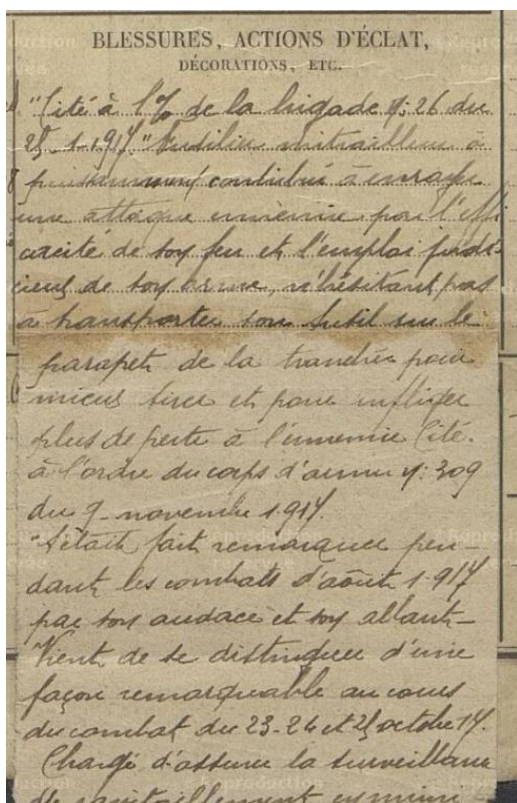 BLESSURES, ACTIONS D'ÉCLAT,
DÉCORATIONS, ETC.
"Cité à l'% de la brigade N: 26 du
25. 1. 1917 "Fusilier mitrailleur a
puissamment contribué à enrayer
une attaque ennemie par l'effi
cacité de son feu et l'emploi judi-
cieux de son arme, n'hésitant pas
à transporter son fusil sur le
parapet de la tranchée pour
mieux tirer et pour infliger
plus de perte à l'ennemie Cité.
à l'ordre du corps d'armée N: 309
du 9 novembre 1917.
"S'était fait remarquer pen-
dant les combats d'août 1917
par son audace et son allant-
Vient de se distinguer d'une
façon remarquable au cours
du combat du 23-24 et 25 octobre 17.
Chargé d'assurer la surveillance